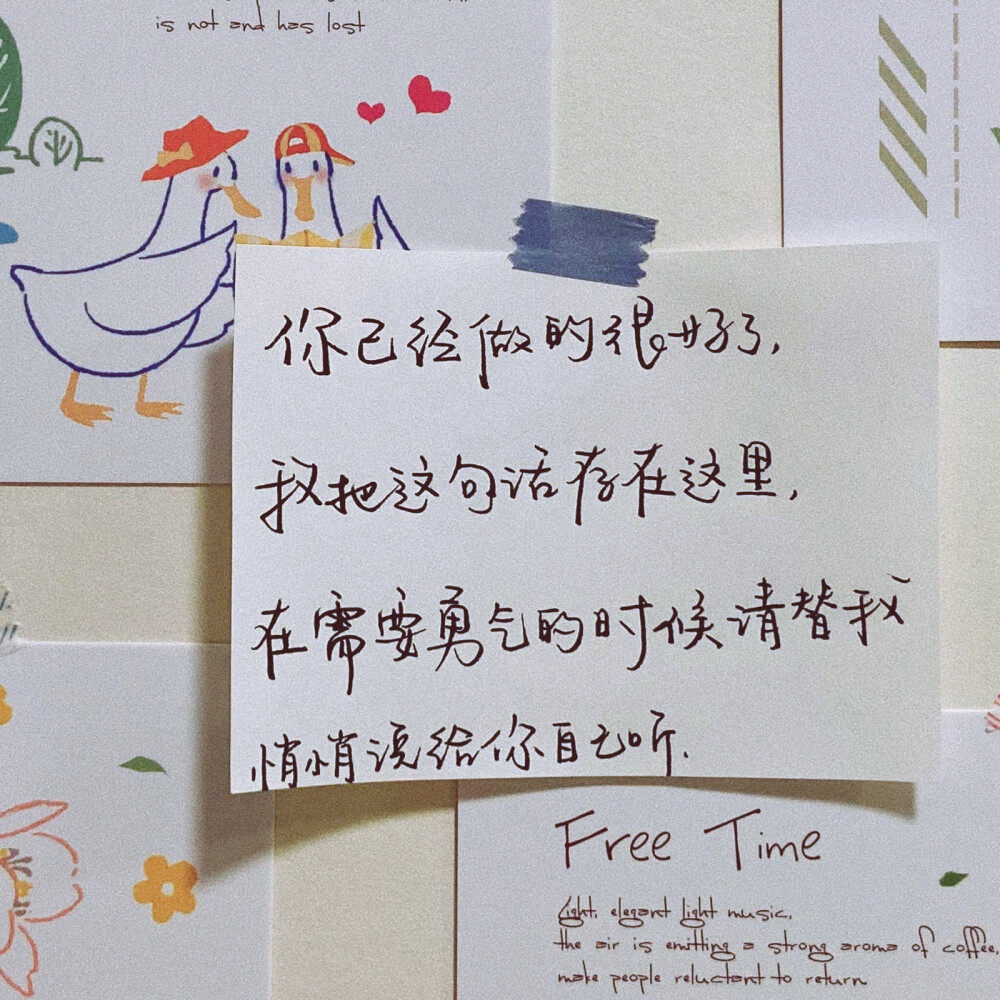 is not and has lost
你已经做的很好了,
我把这句话存在这里,
在需要勇气的时候请替我
悄悄说给你自己听.
Free Time
Light, elegant light music,
the air is emitting a strong aroma of coffee,
make people reluctant to return